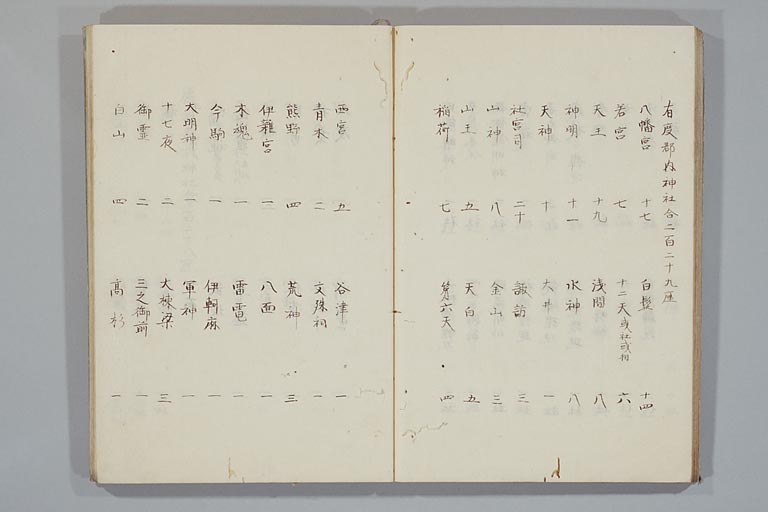 有度郡内神社合二百二十九座
八幡宮 十七 白髭 十四
若宮 七 十二天或社或祠 六
天王 十九 浅間 八
神明 十一 水神 八
天神 十 大井 一
社宮司 二十 諏訪 三
山神 八 金山 三
山王 五 天白 五
稲荷 七 第六天 四
西宮 五 谷津 一
青木 二 文殊祠 一
熊野 四 荒神 三
伊雜宮 一 八面 一
木魂 一 雷電 一
今駒 一 伊軻麻 一
大明神 一 軍神 一
十七夜 二 大棟梁 三
御霊 二 三之御前 一
白山 四 高杉 一